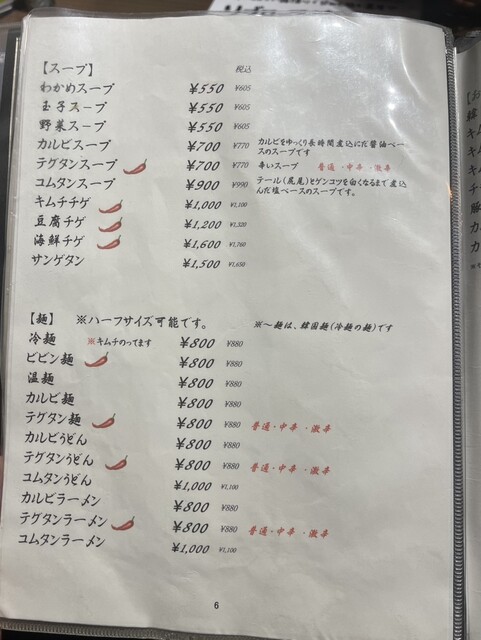 【スープ】 税込
わかめスープ ¥550 ¥605
玉子スープ ¥550 ¥605
野菜スープ ¥550 ¥605
カルビスープ ¥700 ¥770 カルビをゆっくり長時間煮込にだ醤油ベー
スのスープです
テグタンスープ ¥700 ¥770 辛いスープ 普通・中辛・激辛
コムタンスープ ¥900 ¥990 テール(尻尾)とゲンコツを白くなるまで煮込
んだ塩ベースのスープです。
キムチチゲ ¥1,000 ¥1,100
豆腐チゲ ¥1,200 ¥1,320
海鮮チゲ ¥1,600 ¥1,760
サンゲタン ¥1,500 ¥1,650
【麺】 ※ハーフサイズ可能です。 ※〜麺は、韓国麺(冷麺の麺)です
冷麺 ※キムチのってます ¥800 ¥880
ビビン麺 ¥800 ¥880
温麺 ¥800 ¥880
カルビ麺 ¥800 ¥880
テグタン麺 ¥800 ¥880 普通・中辛・激辛
カルビうどん ¥800 ¥880
テグタンうどん ¥800 ¥880 普通・中辛・激辛
コムタンうどん ¥1,000 ¥1,100
カルビラーメン ¥800 ¥880
テグタンラーメン ¥800 ¥880 普通・中辛・激辛
コムタンラーメン ¥1,000 ¥1,100
6